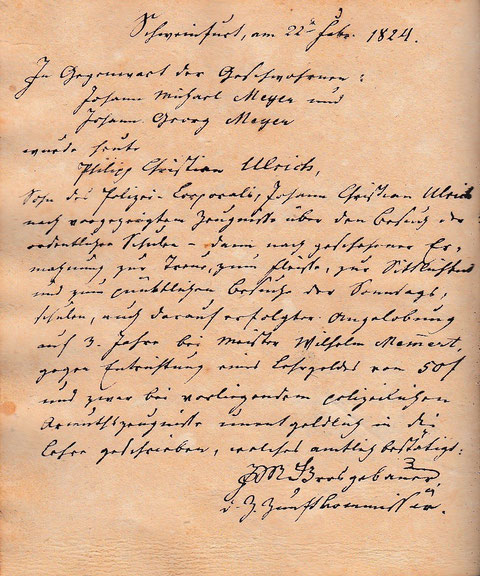 Schweinfurt, am 22ⁿ Febr. 1824.
In Gegenwart der Geschwohrenen:
Johann Michael Meyer und
Johann Georg Meyer
wurde heute
Philipp Christian Ulrich,
Sohn des Polizei-Corporals, Johann Christian Ulrich
nach vorgezeigtem Zeugnisse über den Besuch der
ordentlichen Schulen - dann nach geschehener Er=
mahnung zur Treue, zum Fleiße, zur Sittlichkeit
und zum pünktlichen Besuche der Sonntags=
schulen, auch darauf erfolgter Angelobung
auf 3. Jahre bei Meister Wilhelm Memert,
gegen Entrichtung eines Lehrgeldes von 50 f
und zwar bei vorliegendem polizeilichen
Armuthszeugnisse unentgeldlich in die
Lehre geschrieben, welches amtlich bestätigt:
Grosgebauer,
d. Z. Zunftkommissär.